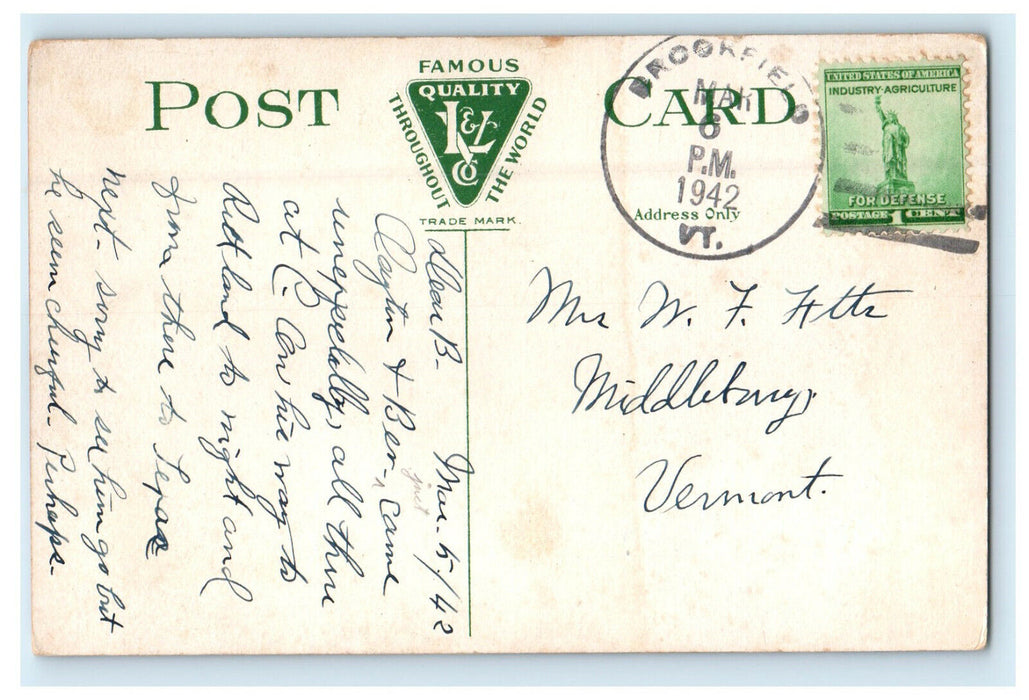 POST CARD
FAMOUS
QUALITY
THROUGHOUT
THE WORLD
L&Co
TRADE MARK.
BROOKFIELD
MAR
6
P.M.
1942
VT.
Address Only
UNITED STATES OF AMERICA
INDUSTRY-AGRICULTURE
FOR DEFENSE
POSTAGE 1 CENT
Mrs W. F.
Middlebury,
Vermont.
Mar. 5/42
Dear B-
& Ben just came
unexpectedly, all three
at C. On his way to
Rutland to night and
from there to
next- sorry to see him go but
he seem cheerful- Perhaps-